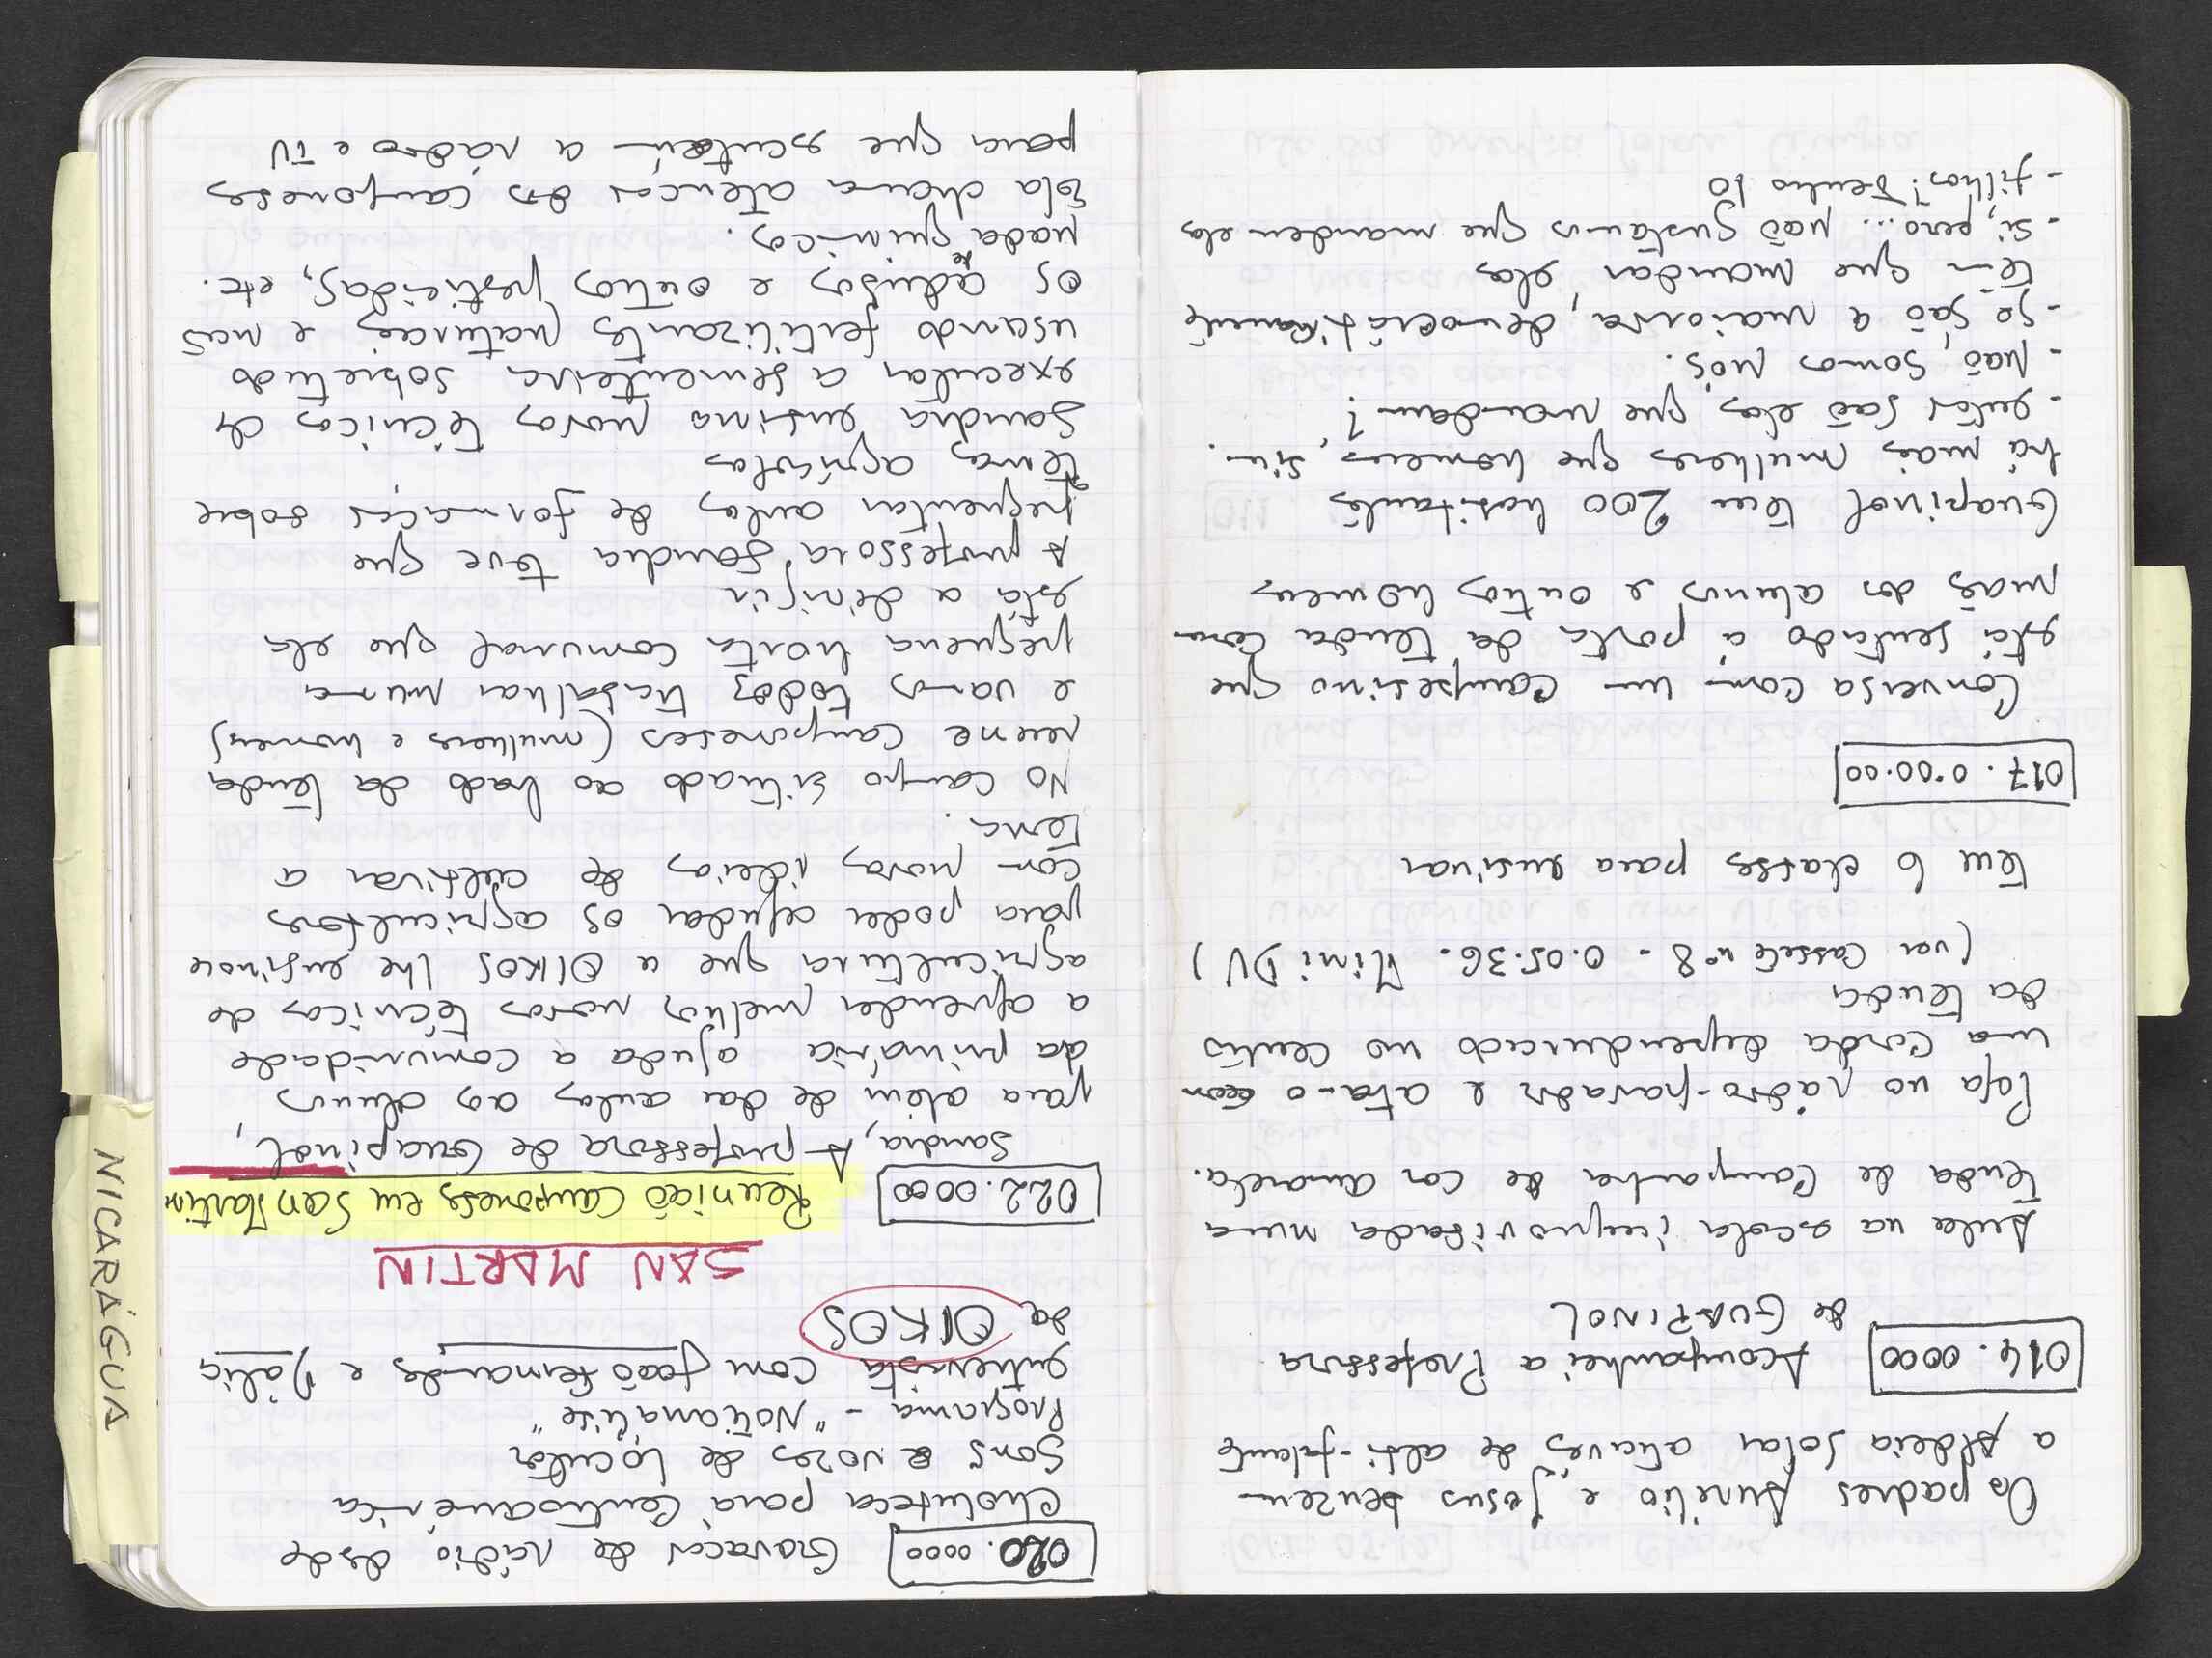 Os padres Aurélio e Jesus benzem
a Aldeia Solar através de alti-falante
014.0000 Acompanhei a Professora
de GUAPINOL
Aula na escola improvisada numa
tenda de campanha de cor amarela.
Pega no rádio-gravador e ata-o com
uma corda dependurado no centro
da tenda
(ver cassete nº 8 - 0.05.36. Mini DV)
Tem 6 classes para ensinar
017. 0'00.00
Conversa com um campesino que
está sentado à porta da tenda com
mais dos alunos e outros homens
Guapinol tem 200 habitantes
há mais mulheres que homens, sim.
- então são elas que mandam?
- Não, somos nós.
- Se são a maioria, democráticamente
têm que mandar elas
- Si, pero... não gustamos que manden elas
- filhos? Tenho 10
020.0000 Gravação de rádio desde
Choluteca para Centroamérica
Sons e vozes de locutor
Programa - "Notianálise"
entrevista com João Fernandes e Dália
de OIKOS
SAN MARTIN
022.0000 Reunião Camponeses em San Martin
Sandra, A professora de Guapinol,
para além de dar aulas aos alunos
da primária ajuda a comunidade
a aprender melhor novas técnicas de
agricultura que a OIKOS lhe ensinou
para poder ajudar os agricultores
com novas ideias de cultivar a
terra.
No campo situado ao lado da tenda
reune camponeses (mulheres e homens)
e vamos todos trabalhar numa
pequena horta comunal que ela
está a dirigir
A professora Sandra teve que
frequentar aulas de formação sobre
temas agrícolas
Sandra ensina novas técnicas de
executar a sementeira sobretudo
usando fertilizantes naturais e nas
os adubos e outros pesticidas, etc.
nada químicos.
Ela chama atenção dos camponeses
para que escutem a rádio e TV
NICARÁGUA